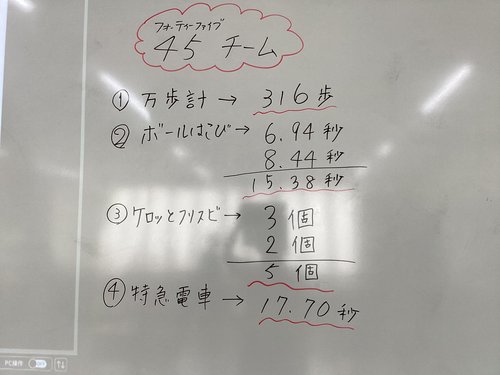 フォーティーファイブ
45 チーム
① 万歩計 → 316歩
② ボールはこび → 6.94秒
8.44秒
15.38秒
③ ケロッとフリスビー → 3個
2個
5個
④ 特急電車 → 17.70秒
PC操作